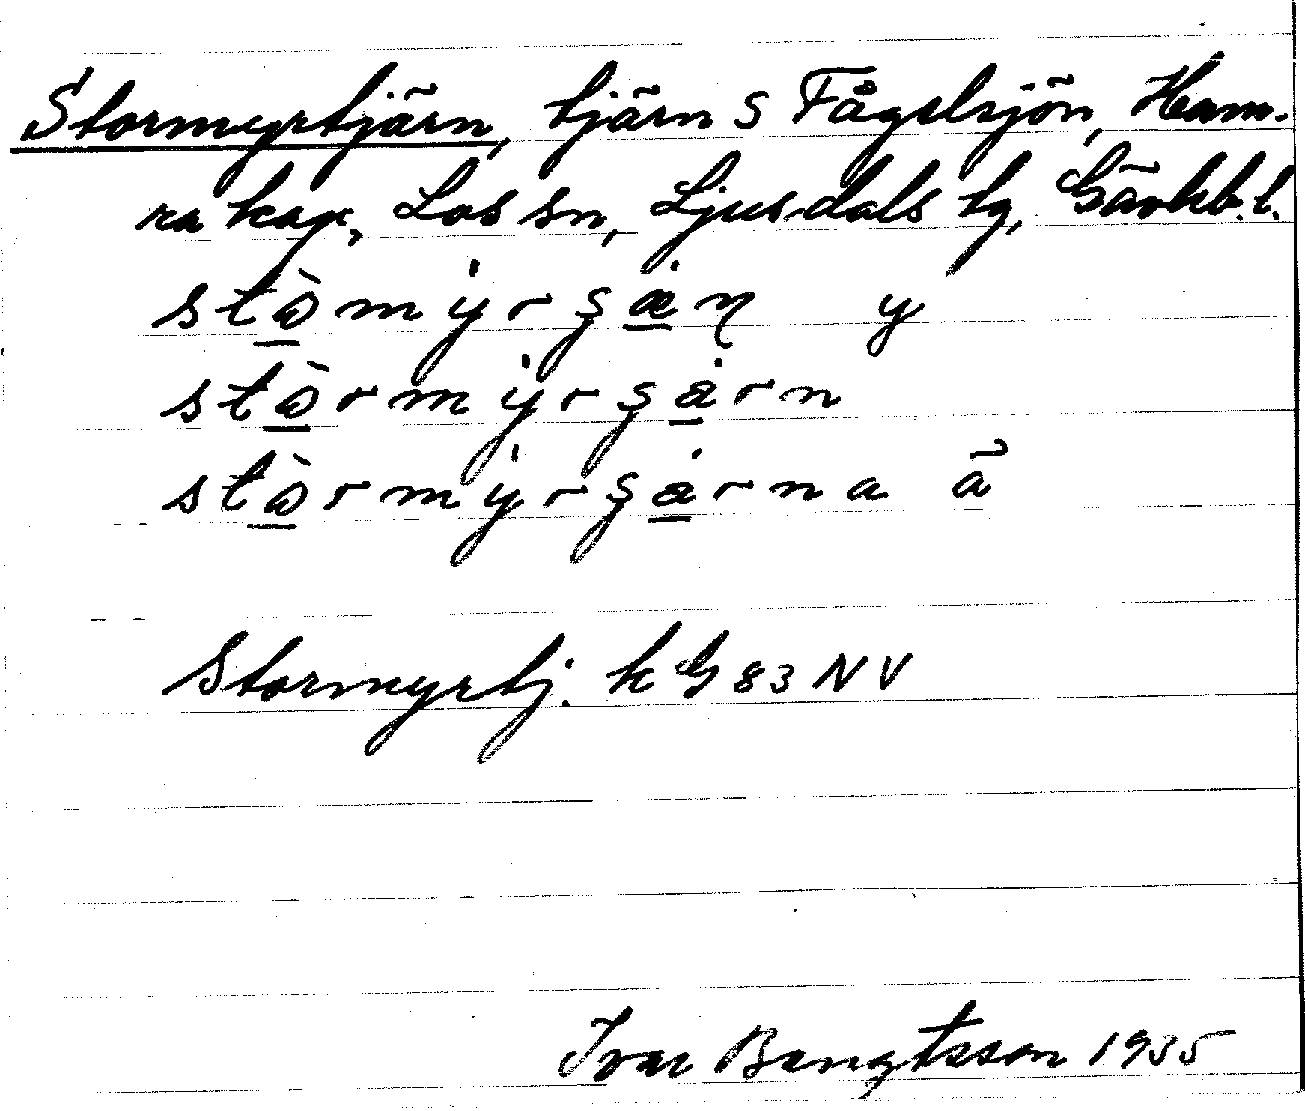 Stormyrtjärn, tjärn S Fågelsjön, Hamra kap, Los sn, Ljusdals tg, Gävleb. l.
stò̱mẏrʂæ̱̇ɳ y
stò̱rmẏrʂȧ̱rn
stò̱rmẏrʂȧ̱rna ā
Stormyrtj. k G 83 NV
Ivar Bengtsson 1935